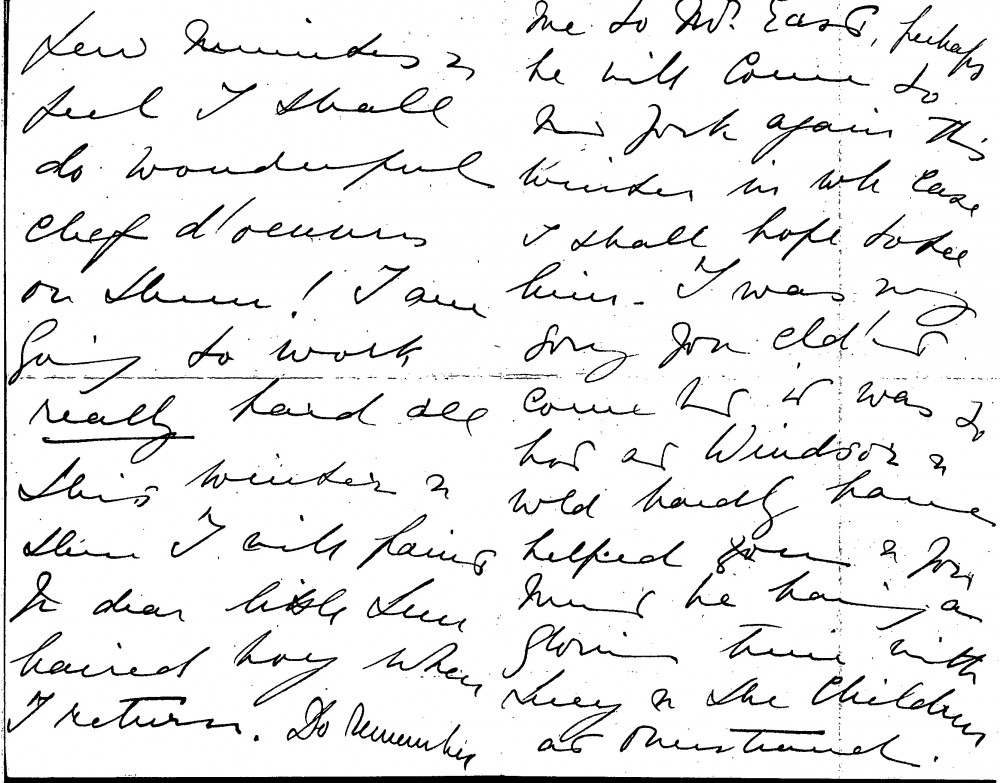 few minutes &
feel I shall
do wonderful
chef d'oeuvres
on them! I am
going to work
really hard all
this winter &
then I will paint
yr dear little
haired boy when
I return. Do remember
me to Mr. East, perhaps
he will come to
New York again this
winter in wh case
I shall hope to see
him. I was very
sorry you cld'nt
come but it was so
hot at Windsor &
wld hardly have
helped you & you
must be having a
glorious time with
Lucy & the children
at Overstrand.